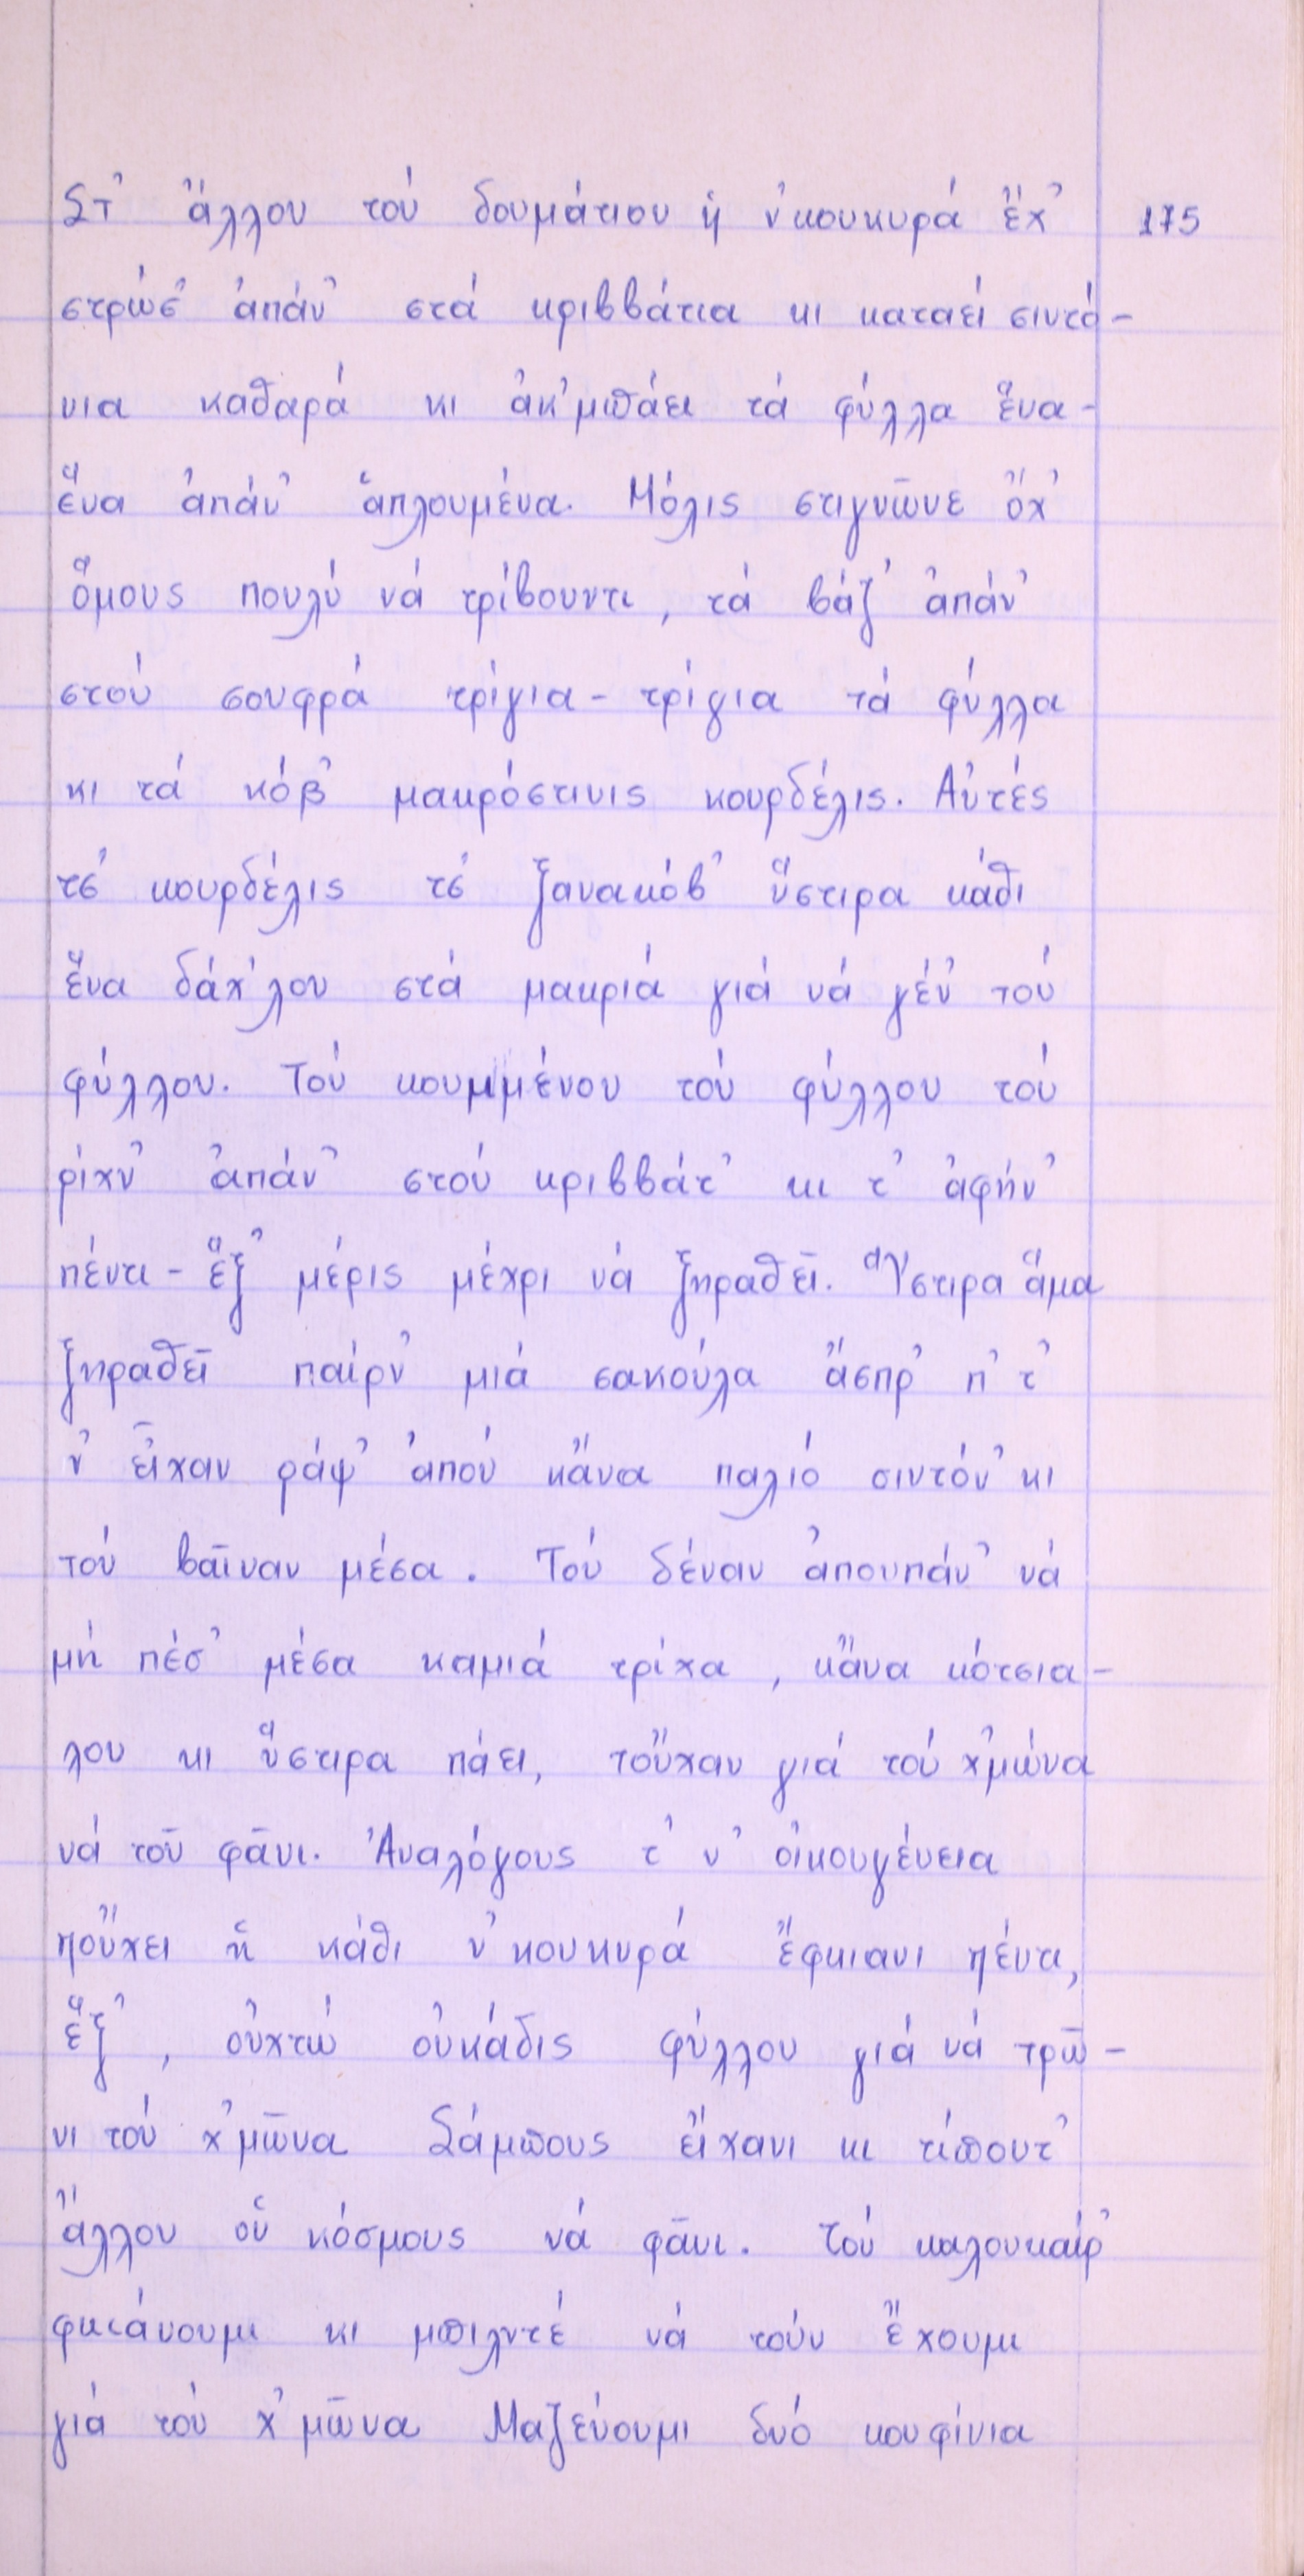 Στ' ἄλλου τού δουμάτιου ἡ ν'κουκυρά ἔχ' 175
στρώσ' ἀπάν' στά κριββάτια κι καταεί σιντό-
νια καθαρά κι ἀκ'μπάει τά φύλλα ἕνα-
ἕνα ἀπάν' ἁπλουμένα. Μόλις στιγνῶνε ὄχ'
ὅμους πουλύ νά τρίβουντι, τά βάζ' ἀπάν'
στού σουφρά τρίγια-τρίγια τά φύλλα
κι τά κόβ' μακρόστινις κουρδέλις. Αὐτές
τσ' κουρδέλις τσ' ξανακόβ' ὕστιρα κάθι
ἕνα δάχ'λου στά μακριά γιά νά γέν' τού
φύλλου. Τού κουμμένου τού φύλλου τού
ρίχν' ἀπάν' στού κριββάτ' κι τ' ἀφήν'
πέντι-ἕξ' μέρις μέχρι νά ξηραθεῖ. Ὕστιρα ἅμα
ξηραθεῖ παίρν' μιά σακούλα ἄσπρ' π' τ'
ν' εἶχαν ράψ' ἀπού κἄνα παλιό σιντόν' κι
τού βαῖναν μέσα. Τού δέναν ἀπουπάν' νά
μή πέσ' μέσα καμιά τρίχα, κἄνα κότσια-
λου κι ὕστιρα πάει, τοὔχαν γιά τού χ'μώνα
νά τοῦ φᾶνι. Ἀναλόγους τ' ν' οἰκουγένεια
ποὔχει ἡ κάθι ν'κουκυρά ἔφκιανι πέντι,
ἕξ', οὐχτώ οὐκάδις φύλλου γιά νά τρῶ-
νι τού χ'μῶνα Σάμπους εἴχανι κι τίπουτ'
ἄλλου οὑ κόσμους νά φᾶνι. Τού καλουκαίρ'
φκιάνουμι κι μπιλντέ νά τούν ἔχουμι
γιά τού χ'μῶνα Μαζεύουμι δυό κουφίνια